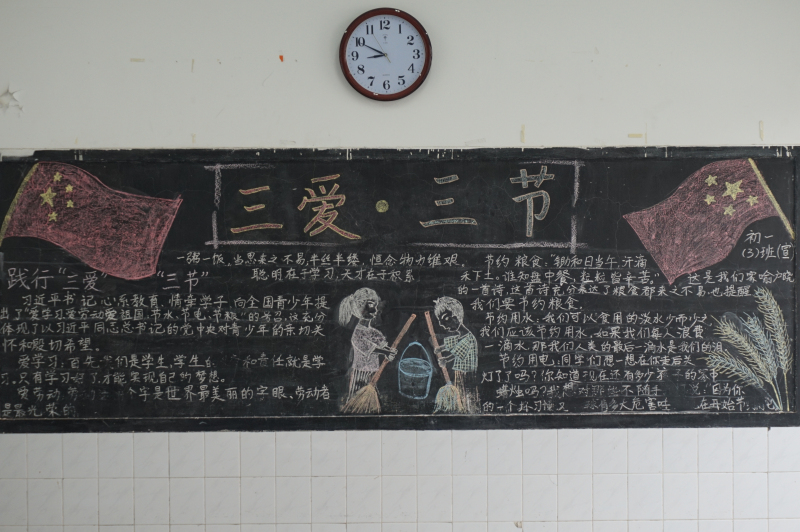 12
1
2
3
4
5
6
7
8
9
10
11
三爱·三节
初一
(3)班(宣
一粥一饭,当思来之不易,半丝半缕,恒念物力维艰。
聪明在于学习,天才在于积累
践行“三爱” “三节”
习近平书记心系教育,情牵学子,向全国青少年提
出了“爱学习爱劳动爱祖国,节水、节电、节粮”的号召,这充分
体现了以习近平同志总书记的党中央对青少年的亲切关
怀和殷切希望。
爱学习:首先 们是学生,学生 和责任就是学
习,只有学习好了,才能实现自己的梦想。
爱劳动 字是世界最美丽的字眼、劳动者
是最光荣的
节约粮食,“锄禾日当午,汗滴
禾下土。谁知盘中餐,粒粒皆辛苦,” 这是我们家喻户晓
的一首诗,这首诗充分表达了粮食都来之不易,也提醒
我们要节约粮食。
节约用水,我们可以食用的淡水少而少之
我们应该节约用水,如果我们每人浪费
一滴水,那我们人类的最后一滴水是我们的泪
节约用电,同学们想一想在你走后关
灯了吗?你知道现在还有多少 的家书
蜡烛吗? 对那些不随手 说,因为你
的一个坏习惯 大危害哇 在母始节